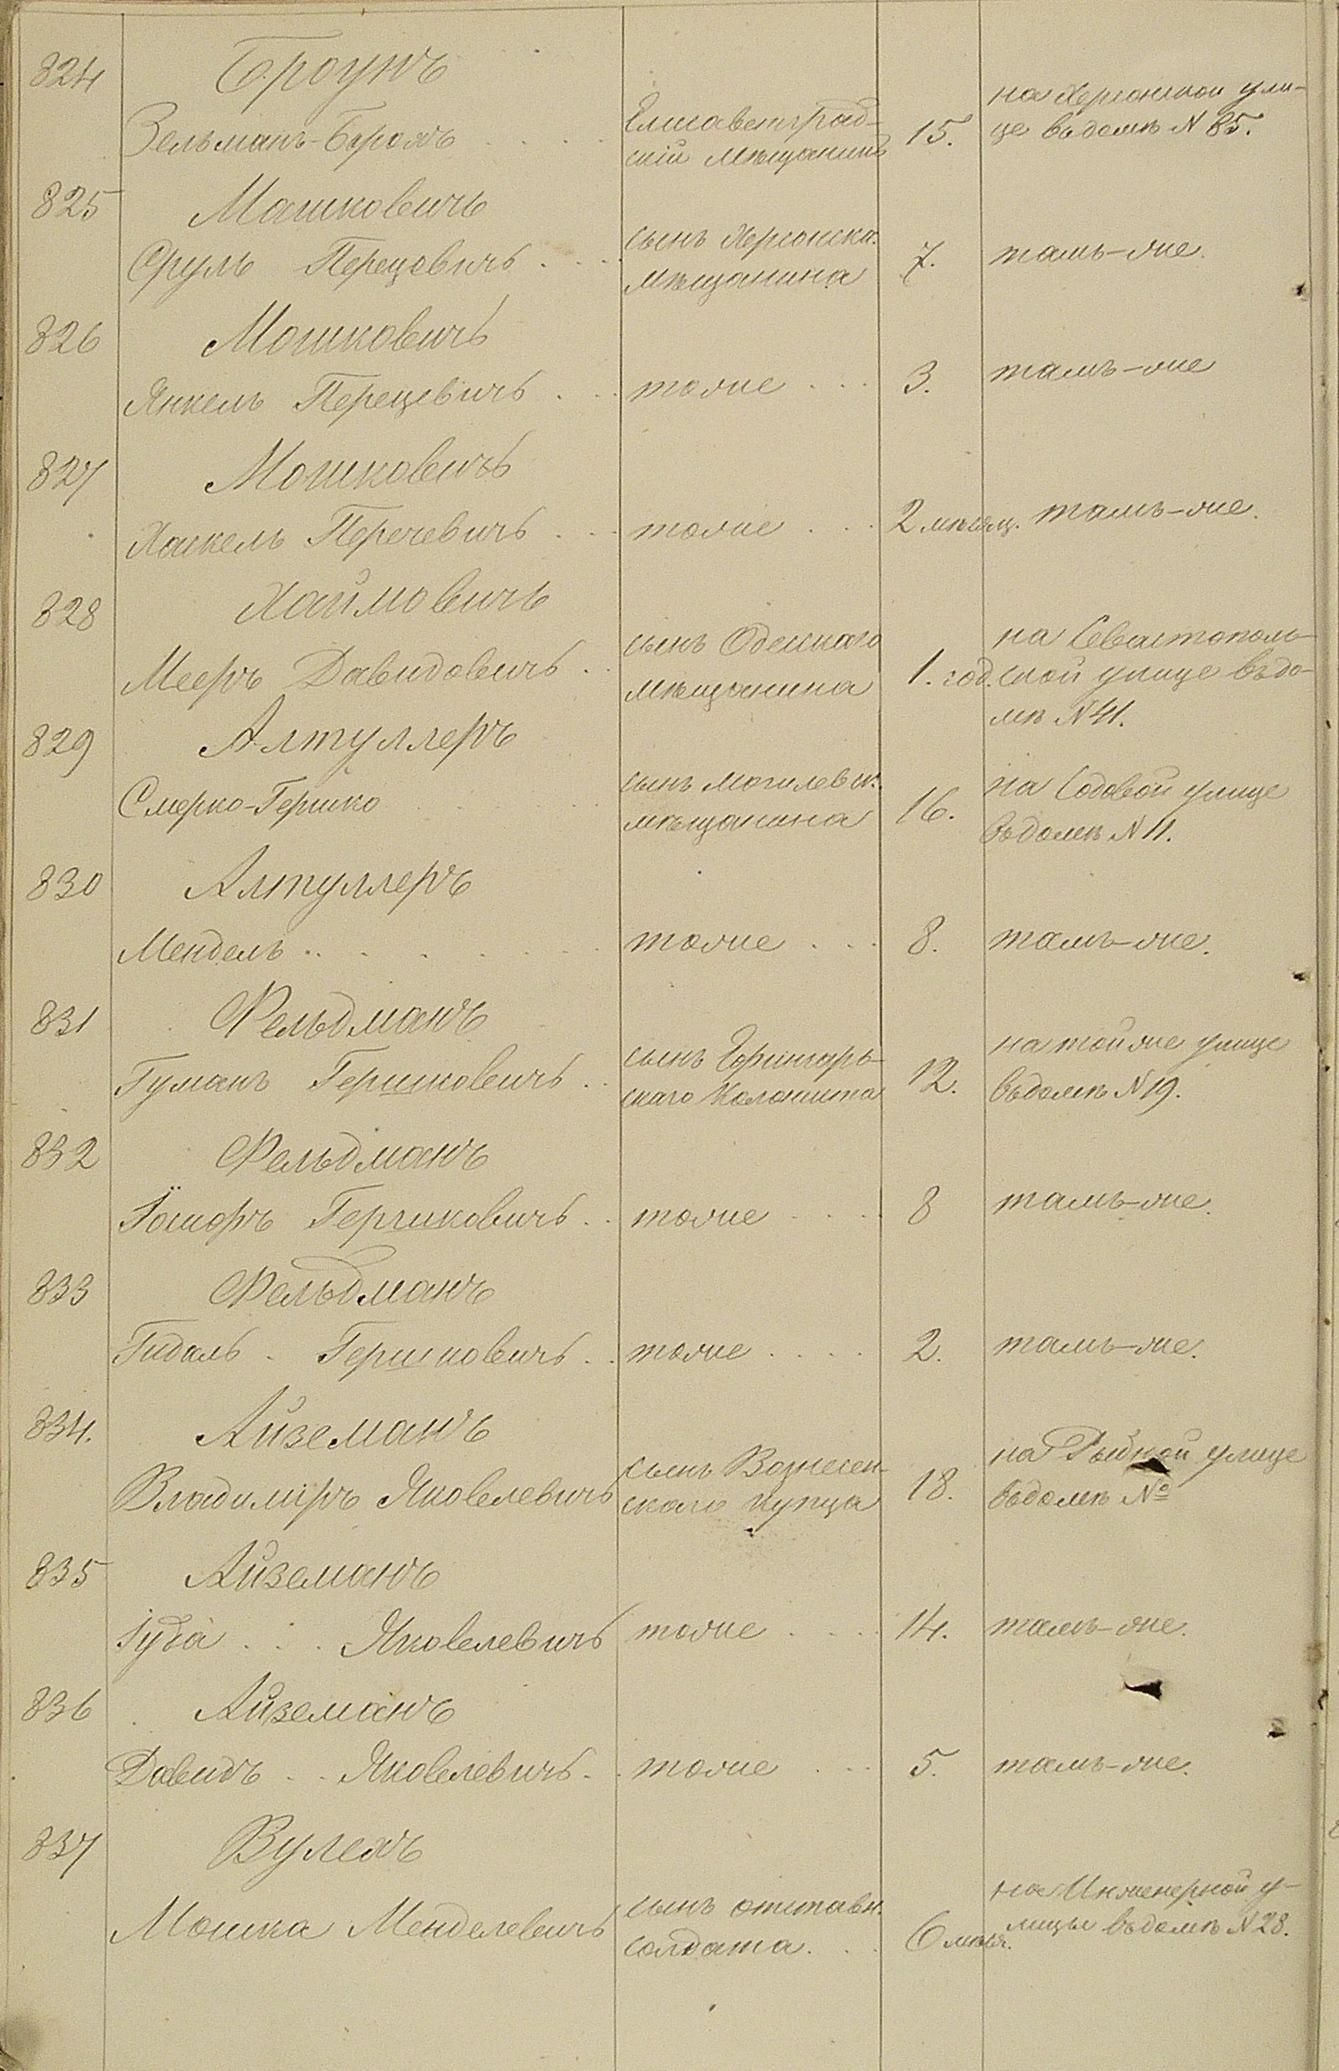 824 Броунъ
Зельманъ-Берохъ
Елисаветград-
скій мѣщанинъ
15.
на Херсонской ули-
це въ домѣ N 85.
825 Мошковичъ
Сруль Перецовичъ
сынъ Херсонск.
мѣщанина
7.
тамъ-же.
826 Мошковичъ
Янкель Перецевичъ
тоже
3.
тамъ-же
827 Мошковичъ
Хаскель Перецевичъ
тоже
2 мѣсяц.
тамъ-же.
828 Хаймовичъ
Мееръ Давидовичъ
сынъ Одесскаго
мѣщанина
1. год.
на Севастополь-
ской улице въ до-
мѣ N 41.
829 Алтуллеръ
Смерко-Гершко
сынъ могилевск.
мѣщанина
16.
на Садовой улице
въ домѣ N 11.
830 Алтуллеръ
Мендель
тоже
8.
тамъ-же.
831 Фельдманъ
Гуманъ Гершковичъ
сынъ
скаго Колониста
12.
на той же улице
въ домѣ N 19.
832 Фельдманъ
Гершковичъ
тоже
8
тамъ-же.
833 Фельдманъ
Гидаль Гершковичъ
тоже
2.
тамъ-же.
834. Айземанъ
Владиміръ Яковлевичъ
сынъ Вознесен-
скаго купца
18.
на Рыбной улице
въ домѣ №
835 Айземанъ
Іуда Яковлевичъ
тоже
14.
тамъ-же.
836 Айземанъ
Давидъ Яковлевичъ
тоже
5.
тамъ-же.
837 Вулехъ
Мошка Менделевичъ
сынъ отставн.
солдата.
6 мѣся.
на Инженерной у-
лицы въ домѣ N 28.